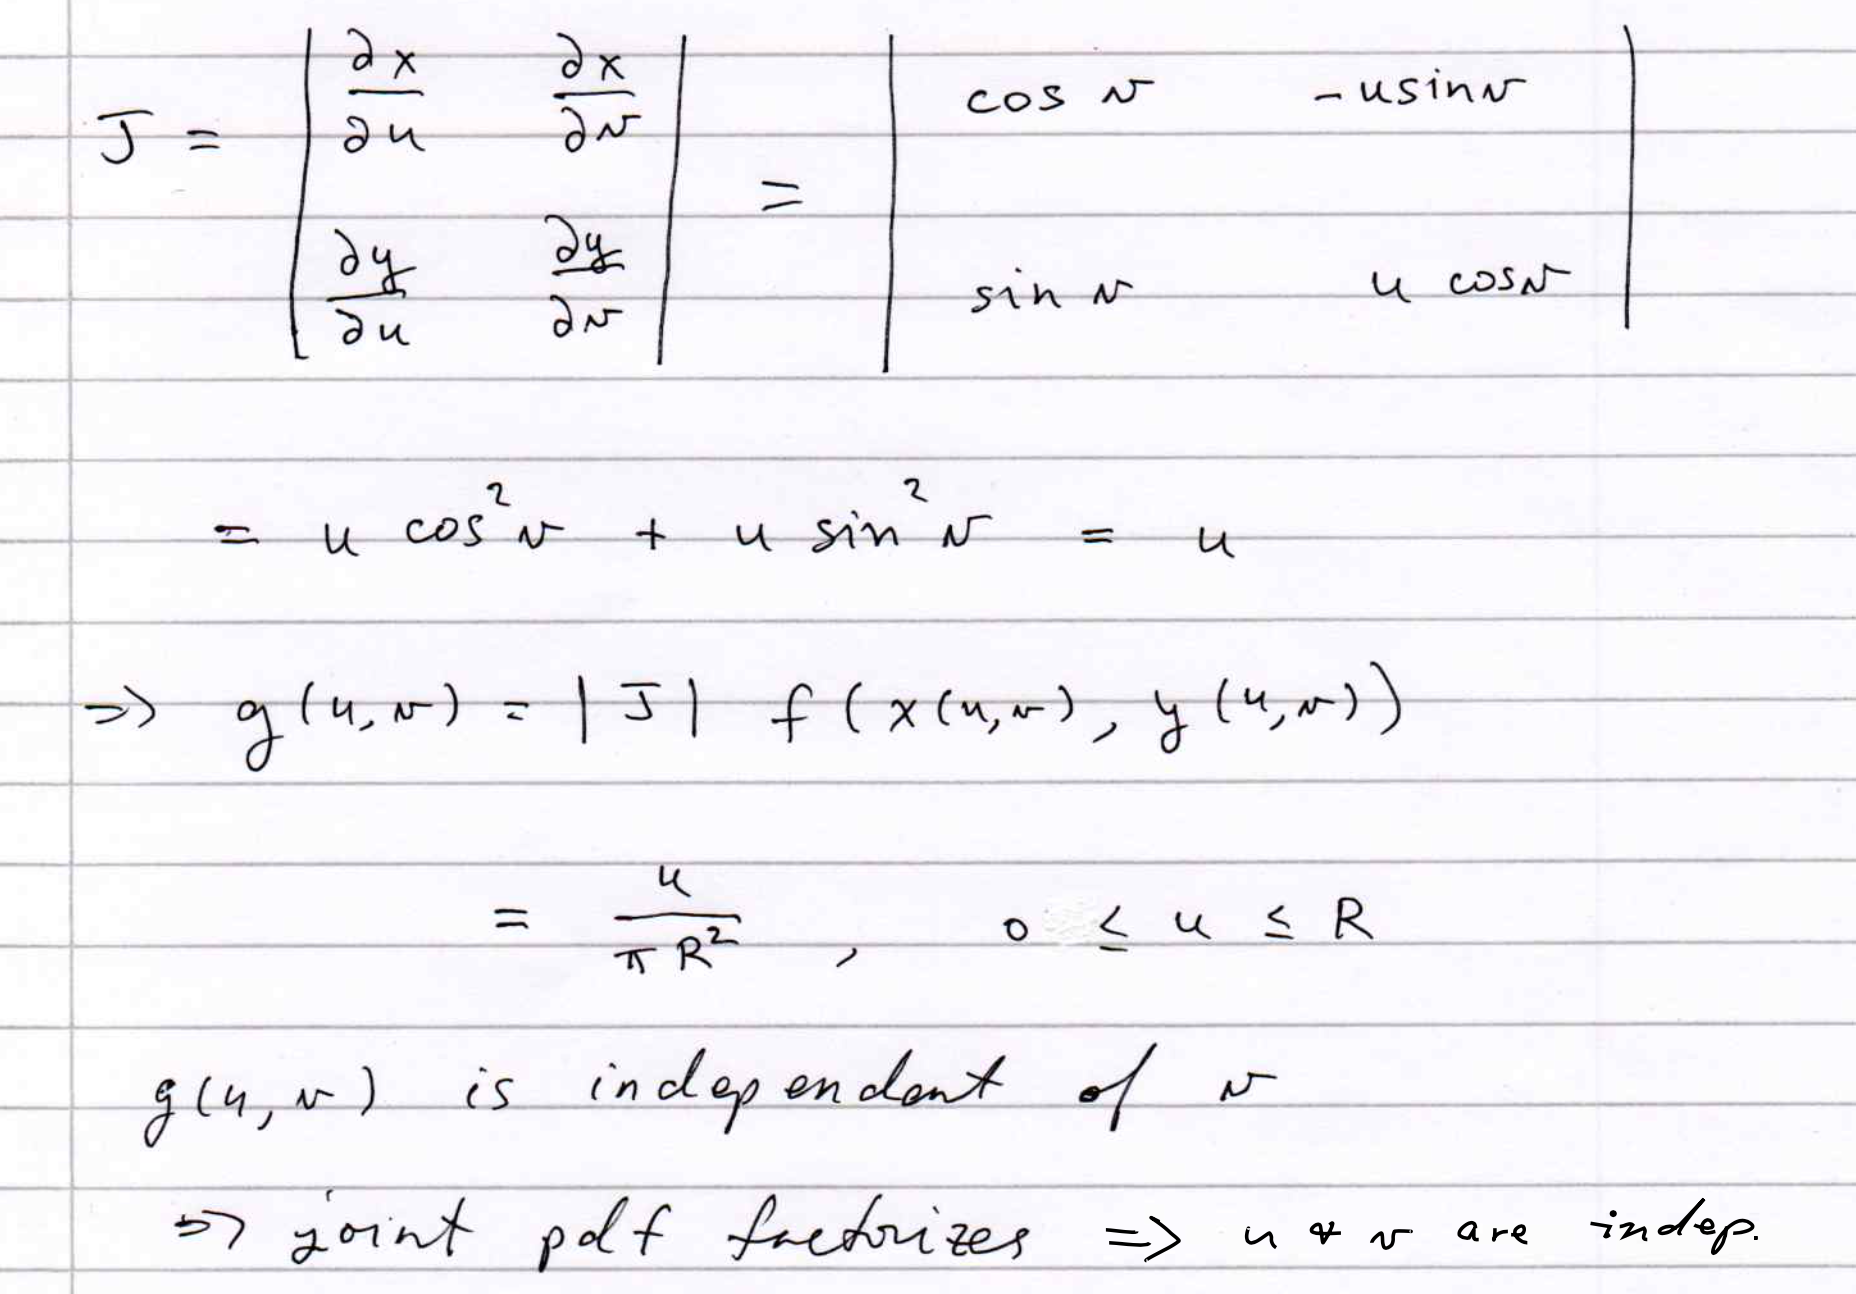 J = | ∂x/∂u ∂x/∂v ; ∂y/∂u ∂y/∂v | = | cos v -u sin v ; sin v u cos v |
= u cos² v + u sin² v = u
=> g(u,v) = |J| f(x(u,v), y(u,v))
= u/(πR²) , 0 ≤ u ≤ R
g(u,v) is independent of v
=> joint pdf factorizes => u & v are indep.